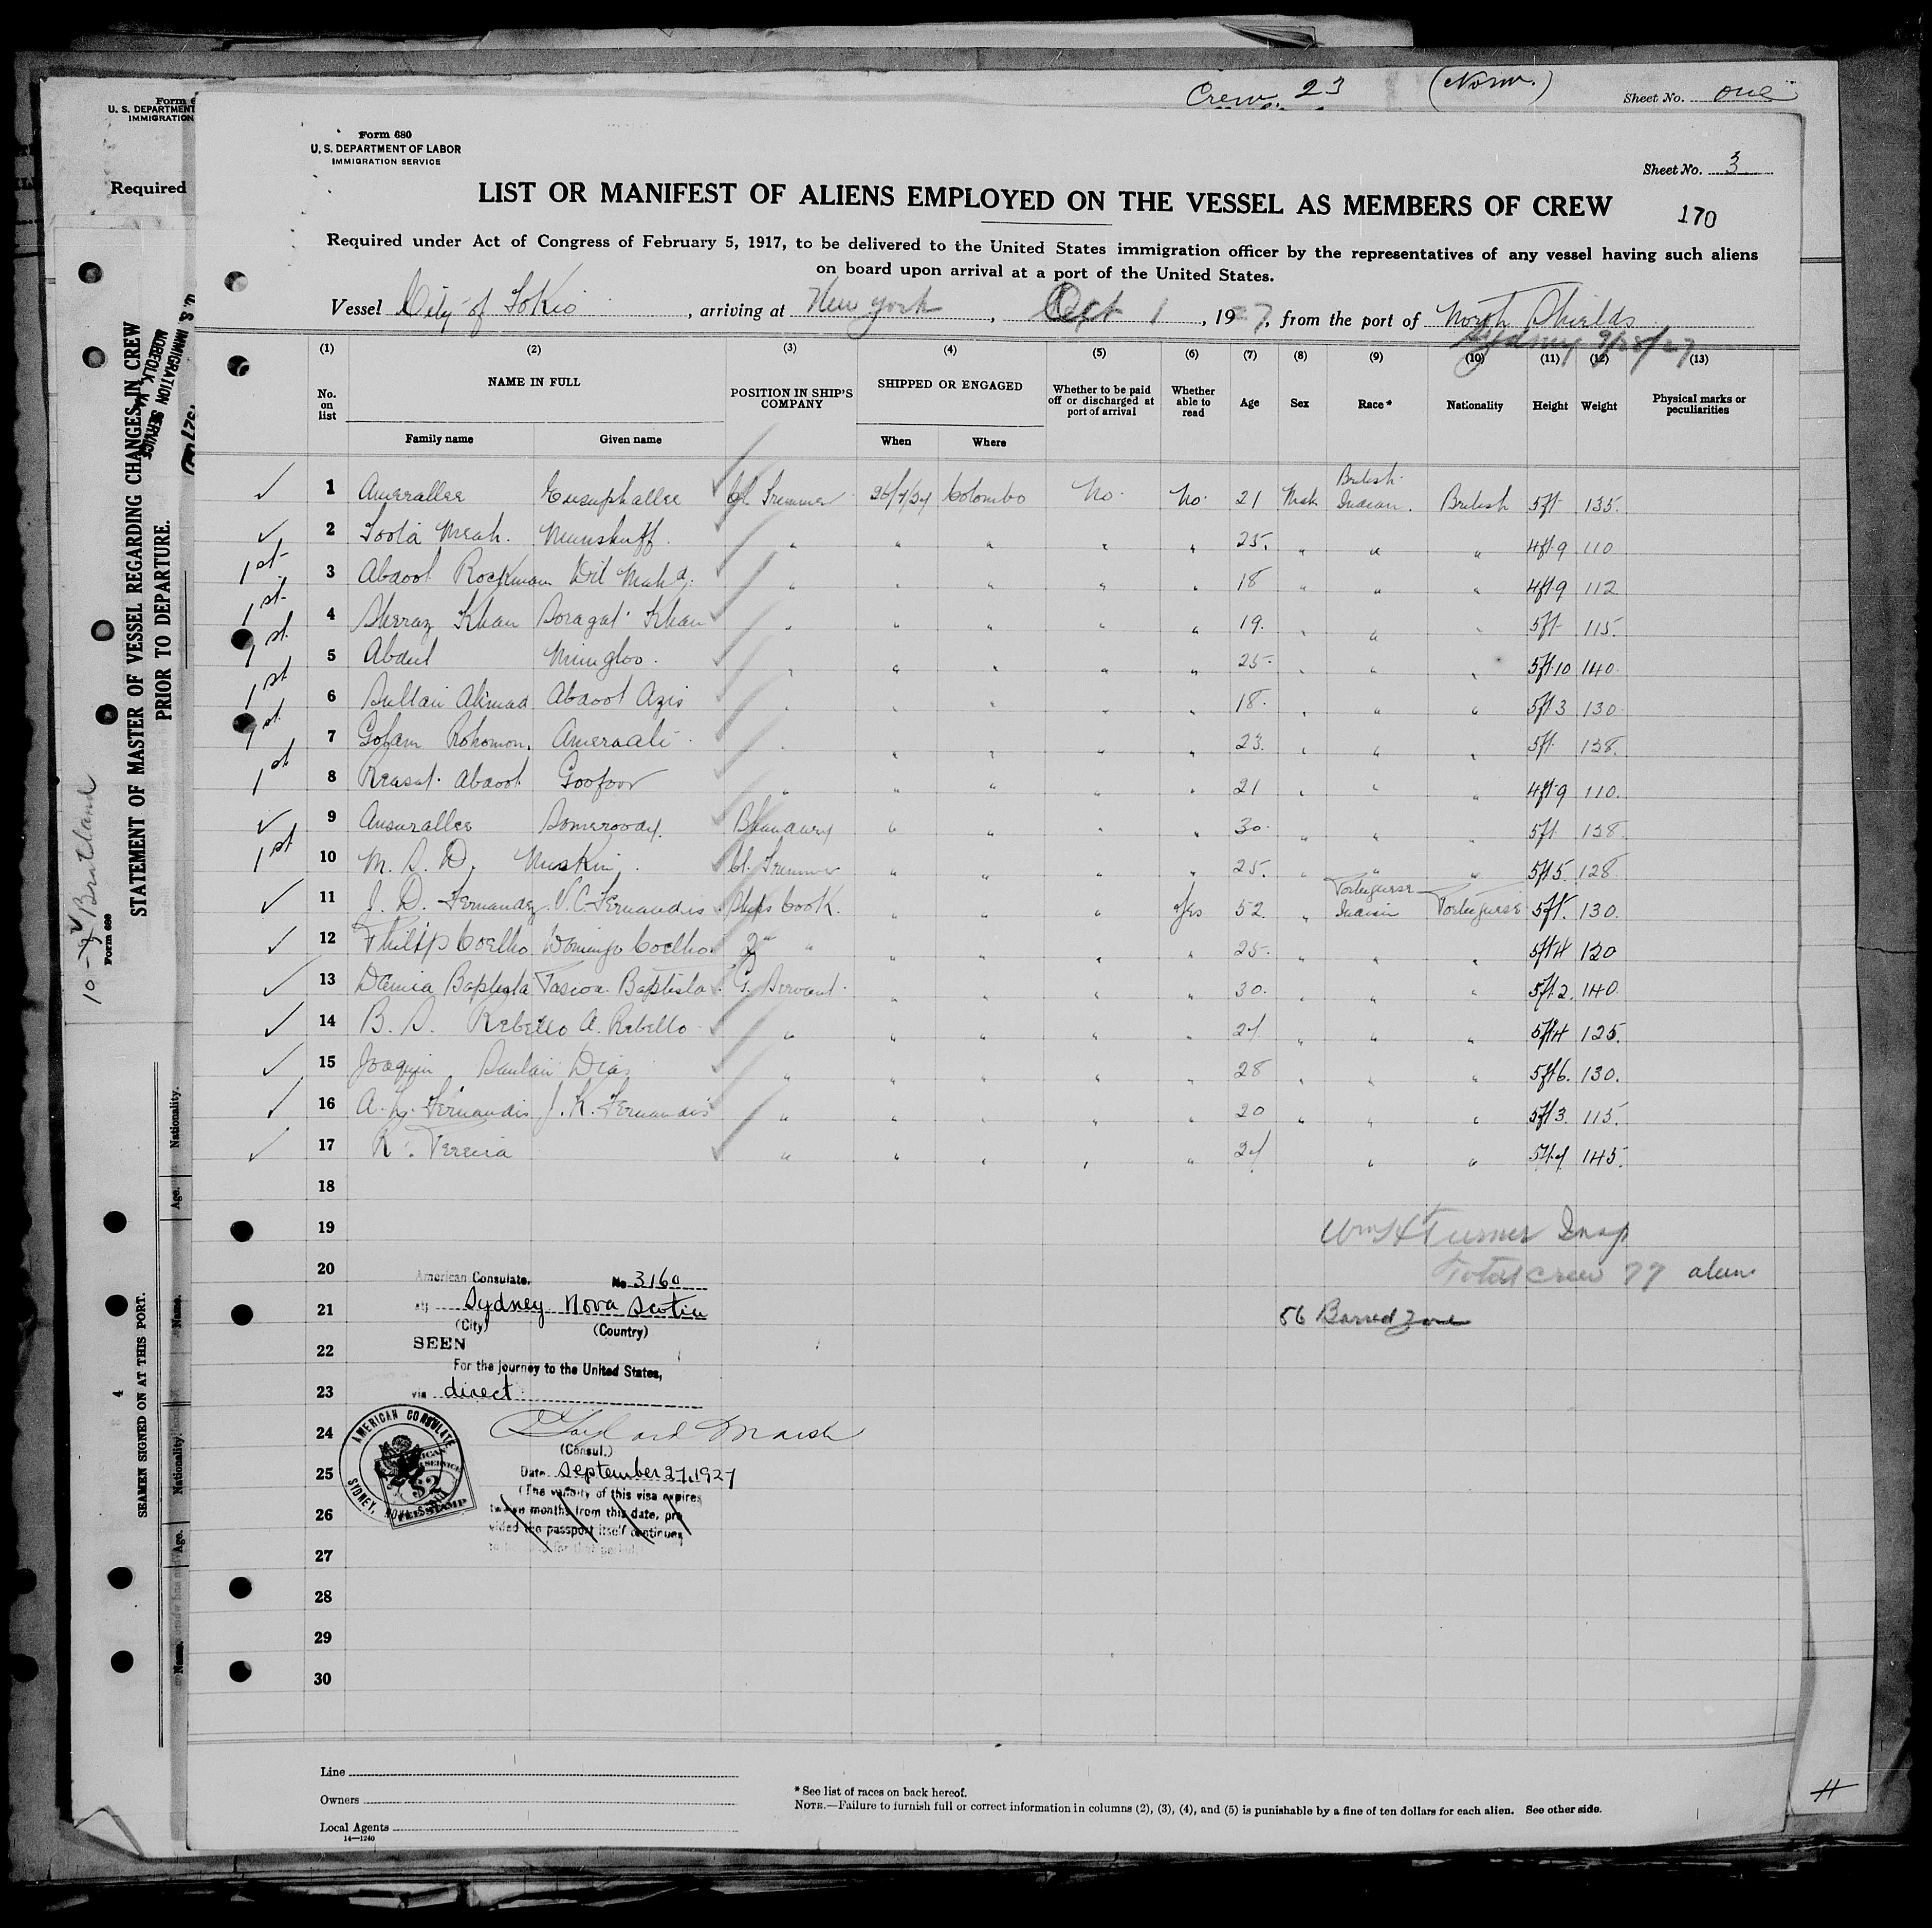 Crew. 23 (Norw.) Sheet No. one
Form 680
U. S. DEPARTMENT OF LABOR
IMMIGRATION SERVICE
Sheet No. 3
LIST OR MANIFEST OF ALIENS EMPLOYED ON THE VESSEL AS MEMBERS OF CREW
170
Required under Act of Congress of February 5, 1917, to be delivered to the United States immigration officer by the representatives of any vessel having such aliens
on board upon arrival at a port of the United States.
Vessel City of Tokio, arriving at New York, Oct 1, 1927, from the port of North Shields
Sydney 9/28/27
(1) (2) (3) (4) (5) (6) (7) (8) (9) (10) (11) (12) (13)
No. on list NAME IN FULL POSITION IN SHIP'S COMPANY SHIPPED OR ENGAGED Whether to be paid off or discharged at port of arrival Whether able to read Age Sex Race* Nationality Height Weight Physical marks or peculiarities
Family name Given name When Where
1 Amerallee Eusuphallee Trimmer Colombo No. No. 21 Male British Indian. British 5ft 135.
2 Toola Meah. Munshuff. " " " " " 25. " " " 4ft9 110
1st 3 Abdool Rockman Dil Mahd. " " " " " 18 " " " 4ft9 112
1st 4 Sherraz Khan Soragat Khan " " " " " 19. " " " 5ft 115.
1st 5 Abdul Mungloo. " " " " " 25. " " " 5ft10 140.
1st 6 Sultan Ahmad Abdool Azis " " " " " 18. " " " 5ft3 130
1st 7 Golam Rohomon. Ameraali " " " " " 23. " " " 5ft 138.
1st 8 Reasat Abdool Goofoor " " " " " 21 " " " 4ft9 110.
9 Ansurallee Someroody. Bhandary " " " " 30. " " " 5ft 138.
1st 10 M. S. D. Muskin. Trimmer " " " " 25. " " " 5ft5. 128
11 J. D. Fernandez V.C. Fernandis Ships Cook. " " " Yes 52 " Portuguese Indian Portuguese 5ft. 130.
12 Philip Coelho Domingo Coelho 2nd " " " " " 25. " " " 5ft4 120
13 Damia Baptista Pascoa Baptista G. Servant. " " " " 30. " " " 5ft2. 140.
14 B. S. Rebello A. Rebello " " " " " 24 " " " 5ft4 125.
15 Joaquin Santan Dias " " " " " 28 " " " 5ft6. 130.
16 A. Fernandis J. K. Fernandis " " " " " 20 " " " 5ft3. 115.
17 R. Pereira " " " " " 24 " " 5ft4 145.
18
19 Wm H Turner Insp
20 Total crew 77 aliens
21 56 Barred Zone
22
23
24
25
26
27
28
29
30
American Consulate. No 3160
at Sydney Nova Scotia
(City) (Country)
SEEN
For the journey to the United States,
via direct
(Consul.)
Date September 27, 1927
(The validity of this visa expires
twelve months from this date, pro
vided the passport itself continues
to be valid for that period.
AMERICAN CONSULATE
SYDNEY, NOVA SCOTIA
$2
FEE STAMP
Line
Owners
Local Agents
14—1240
* See list of races on back hereof.
NOTE.—Failure to furnish full or correct information in columns (2), (3), (4), and (5) is punishable by a fine of ten dollars for each alien. See other side.
U. S. DEPARTMENT
IMMIGRATION
Required
STATEMENT OF MASTER OF VESSEL REGARDING CHANGES IN CREW
PRIOR TO DEPARTURE.
U. S. IMMIGRATION SERVICE
NORFOLK VA.
Form 680
SEAMEN SIGNED ON AT THIS PORT.
Name. Age. Nationality. Name. Age. Nationality.